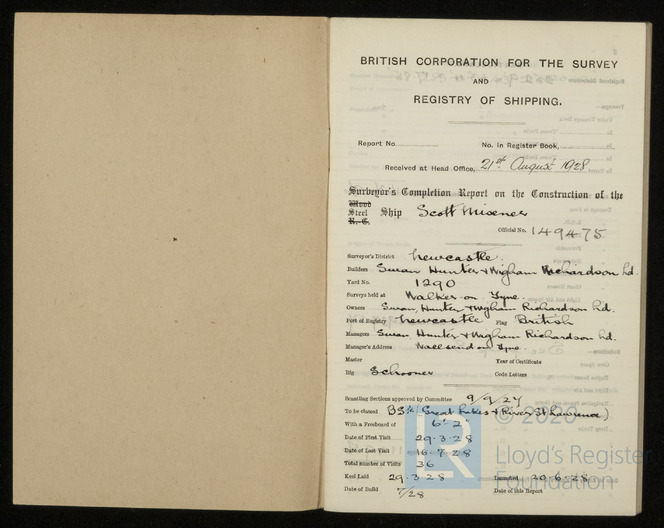 BRITISH CORPORATION FOR THE SURVEY
AND
REGISTRY OF SHIPPING.
Report No.
No. in Register Book,
Received at Head Office, 21st August 1928
Surveyor's Completion Report on the Construction of the
Wood
Steel Ship Scott Misener
R.-C.
Official No. 149475
Surveyor's District Newcastle.
Builders Swan Hunter & Wigham Richardson Ld.
Yard No. 1290
Surveys held at Walker on Tyne.
Owners Swan, Hunter & Wigham Richardson Ld.
Port of Registry Newcastle Flag British
Managers Swan Hunter & Wigham Richardson Ld.
Manager's Address Wallsend on Tyne.
Master Year of Certificate
Rig Schooner Code Letters
Scantling Sections approved by Committee 9/9/27
To be classed BS* (Great Lakes & River St Lawrence)
With a Freeboard of 6'-2"
Date of First Visit 29-3-28
Date of Last Visit 16-7-28
Total number of Visits 36
Keel Laid 29-3-28 Launched 20-6-28
Date of Build 7/28 Date of this Report
LR © 2020
Lloyd's Register
Foundation